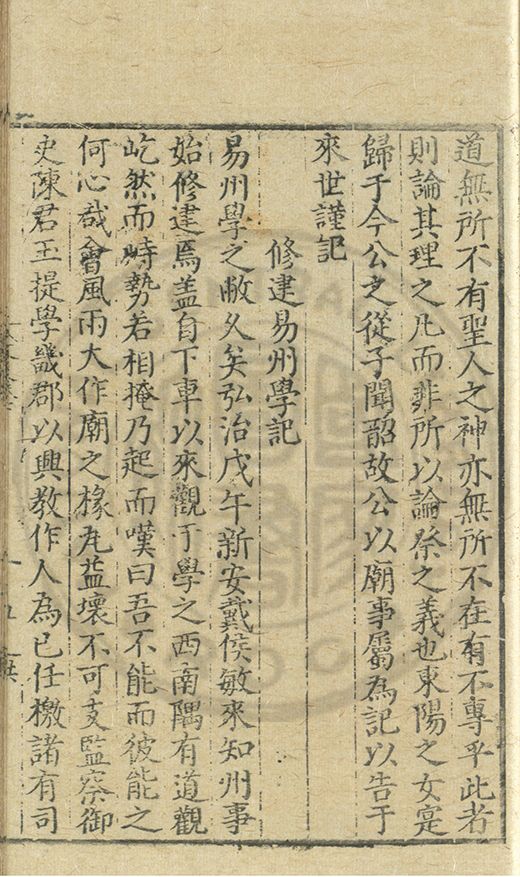 道無所不有聖人之神亦無所不在有不專乎此者
則論其理之凡而非所以論祭之義也東陽之女寔
歸于今公之從子聞韶故公以廟事屬為記以告于
來世謹記
修建易州學記
易州學之敝久矣弘治戊午新安戴侯敏來知州事
始修建焉盖自下車以來觀于學之西南隅有道觀
屹然而時勢若相掩乃起而嘆曰吾不能而彼能之
何心哉會風雨大作廟之椽瓦葢壞不可支監察御
史陳君玉提學畿郡以興教作人為已任檄諸有司